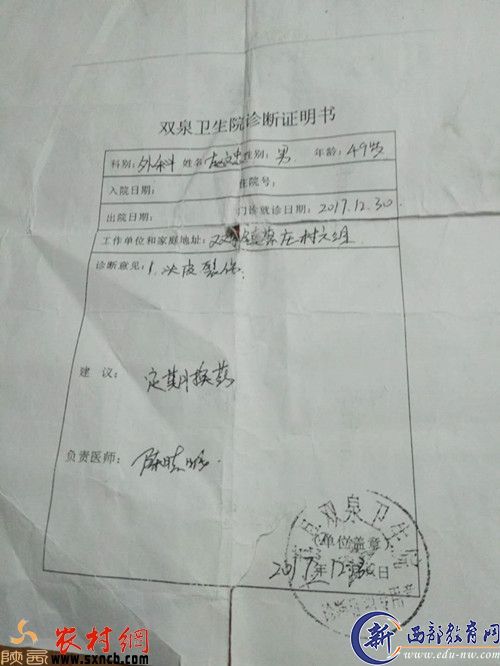 双泉卫生院诊断证明书
科别：外科 姓名 性别：男 年龄：49岁
入院日期： 住院号：
出院日期： 门诊就诊日期：2017.12.30
工作单位和家庭地址：双泉镇 庄村六组
诊断意见：1. 头皮裂伤
建 议： 定期换药
负责医师： 陈
双泉卫生院
（单位盖章）
2017年12月30日
陕西 农村網
www.sxncb.com
新 西部教育网
www.edu-nw.com